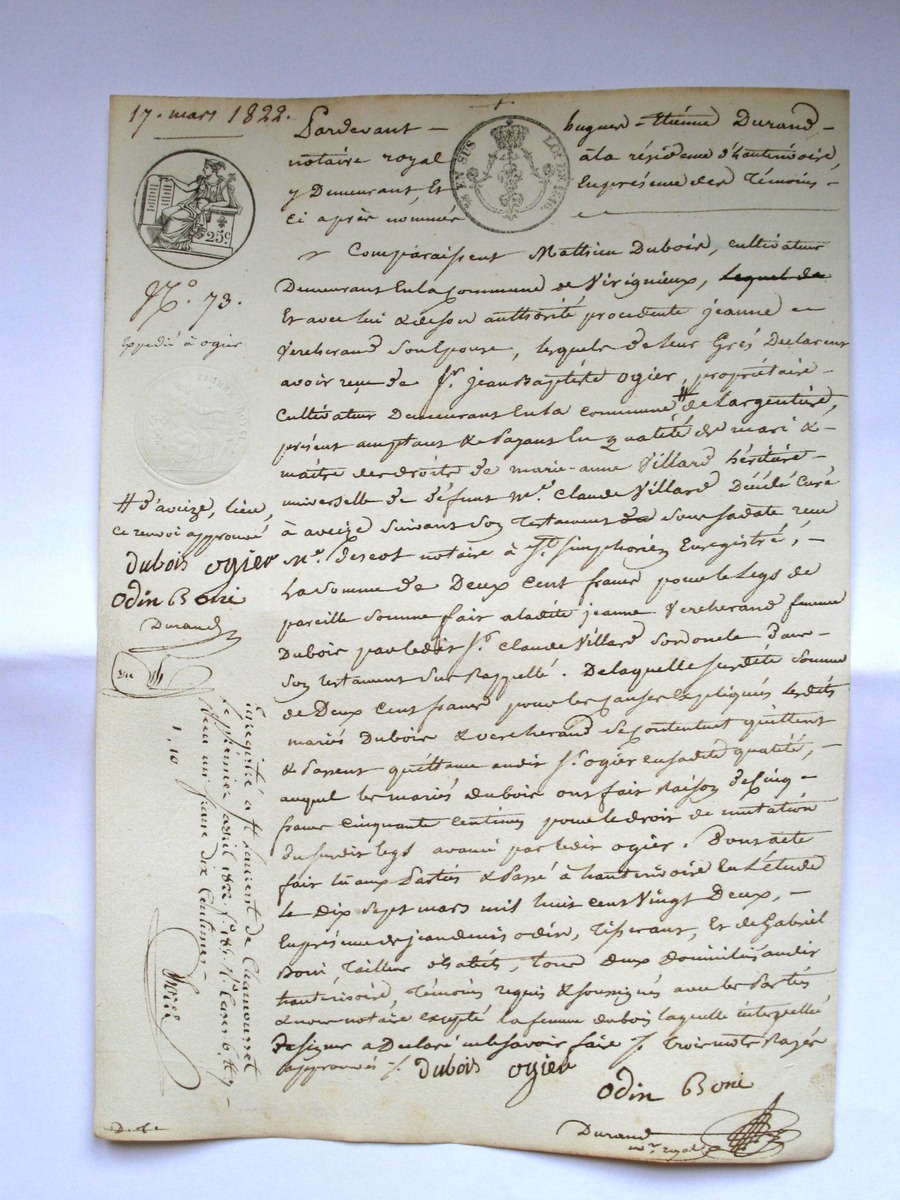 17. mars 1822.
Pardevant hugues-étienne Durand,
notaire royal à la résidence d'hauterivoire,
y Demeurant, Et En présence des Témoins
Ci après nommés
EN SUS LOI DE 1816.
25c.
Comparaissent Mathieu Dubois, cultivateur
N.o 73.
Demeurant En la Commune de Virigneux, lequel de
Et avec lui & de son authorité procedente jeanne
expédié à ogier
Vercherand Son Epouse, lesquels de leur Grés Declarent
avoir reçu de Sr. jean Baptiste Ogier, propriétaire
Cultivateur Demeurant En la commune # de Largentière,
présent acceptant & Payant En qualité de mari &
maître des droits de marie-anne Villard héritière
universelle de défunt mr. Claude Villard Décédé Curé
à aveize Suivant Son Testament Sous Sa date reçu
Me. Descot notaire à St. Simphorien Enregistré,
# d'aveize, lieu
ce renvoi approuvé
dubois ogier
odin Boni
Durand
La Somme de Deux Cent francs pour le Legs de
pareille Somme fait à ladite jeanne Vercherand femme
Dubois par ledit Sr. Claude Villard Son oncle Dans
Son testament Sus Rappellé. De laquelle Susdite Somme
de Deux Cent francs pour les causes Expliqués lesdits
mariés Dubois & Vercherand Se contentent quittent
& Passent quittance audit Sr. ogier En sadite qualité,
auquel les mariés dubois ont fait Raison de Cinq
francs Cinquante Centimes pour le droit de mutation
du susdit legs avancé par ledit ogier. Dont acte
fait lu aux Parties & Passé à hauterivoire En L'étude
Le Dix Sept mars mil huit Cent Vingt Deux,
En présence de jean denis odin, Tisserant, Et de Gabriel
Boni Tailleur d'habits, tous Deux Domiciliés audit
hauterivoire, Témoins requis & soussignés avec les Parties
& nous notaire excepté la femme dubois laquelle interpellée
De signer a Declaré ne le Savoir faire /. Trois mots Rayés
approuvés /.
dubois ogier
odin Boni
Durand
nre. royal
Enregistré à St Laurent de Chamousset
le premier avril 1822
Reçu un franc dix Centimes
1,10